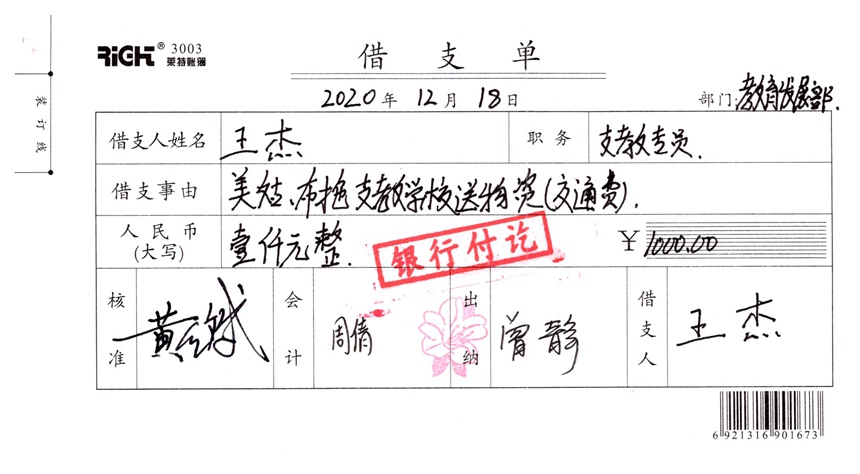 RIGHT® 3003
莱特账簿
借支单
2020年12月18日
部门:教育发展部.
装订线
借支人姓名 王杰 职务 支教专员.
借支事由 美姑、布拖支教学校送物资(交通费).
人民币(大写) 壹仟元整. ¥1000.00
银行付讫
核准 会计 周倩 出纳 曾静 借支人 王杰
6 921316 901673